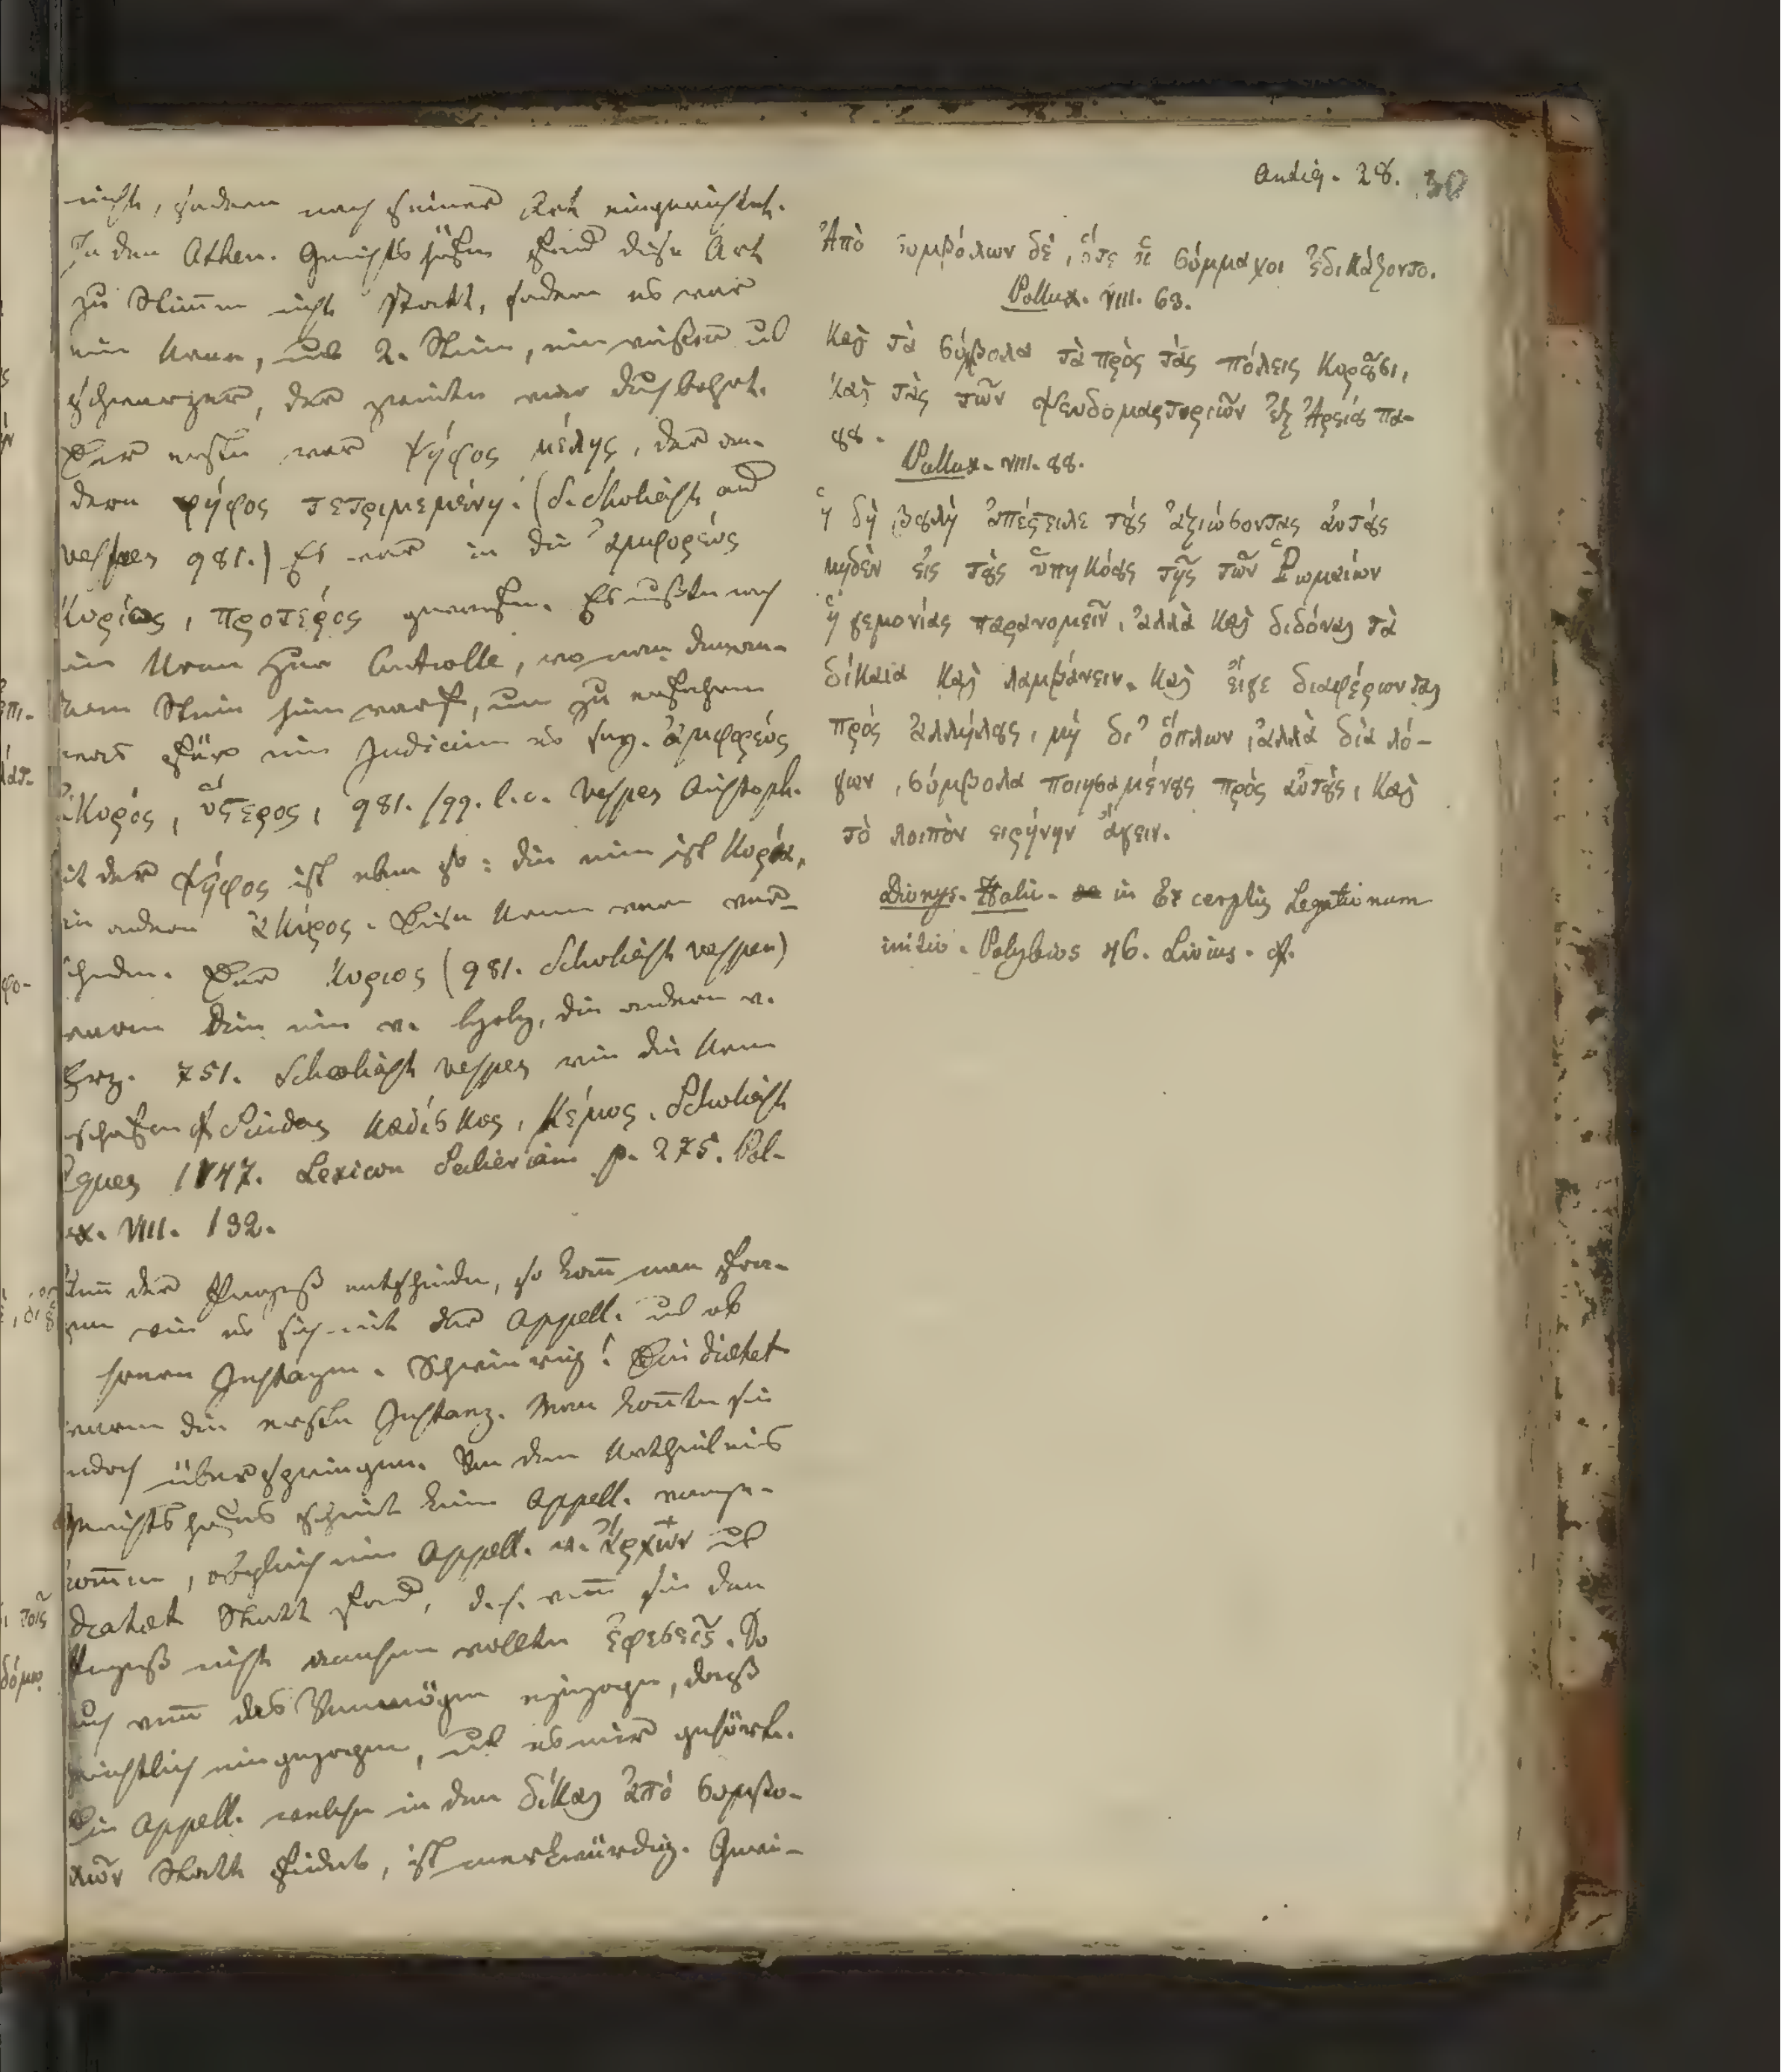 nicht, sondern nach seiner Art eingerichtet.
In den Athen. Gerichtshöfen fand diese Art
zu Stimen nicht statt, sondern es war
eine Urne, und 2. Steine, ein weißer ud
schwarzer, der zweite war durchbohrt.
Der erste war ψήφος μέλης, der an-
dern ψήφος τετριμεμένη. (S. Scholiast ad
vespes 981.) Es war in die ἀμφορεύς
κυρίως, προτερός geworfen. Es mußte noch
eine Urne zur Controlle, wo man den an-
dern Stein hinein warf, um zu erfahren
für ein Judicium es sey. ἀμφορεύς
ἀκυρός, ὕϛερος, 981. sqq. l.c. vespes Aristoph.
mit der ψήφος ist eben so: die eine ist κυρία,
die andern ἀκύρος. Diese Urnen waren ver-
schieden. Der κυριος (981. Scholiast vespes)
waren die eine v. Holz, die andern v.
Erz. 751. Scholiast vespes wie die Urnen
beschaffen cf Suidas καδίσκος, κέμος. Scholiast
Eques 1147. Lexicon p. 275. Pol-
lux. VIII. 132.
der Prozeß entschieden, so kom̄t man fra-
gen wie es sich mit der Appell. ud ob
Instanzen. Schwierig! Die diætet
waren die erste Instanz. Man kon̄te sie
jedoch überspringen. Von dem Urtheil eines
Gerichtshofes scheint keine Appell. vorge-
kom̄en, obgleich eine Appell. v. ἀρχῶν ud
diætet Statt fand, d.h. wen̄ sie den
Prozeß nicht machen wollte ἐφεσεῖς. So
auch wen̄ das Vermögen eingezogen, daß
gerichtlich eingezogen, ud es mir gehörte.
Die Appell. welche in den δίκαι ἀπό συμβο-
λῶν Statt findet, ist merkwürdig. Gewi-
Antiq. 28. 30
Ἀπὸ συμβόλων δὲ, ὅτε οἱ σύμμαχοι ἐδικάζοντο.
Pollux. VIII. 63.
καὶ τὰ σύμβολα τὰ πρὸς τάς πόλεις κυροῦσι,
καὶ τὰς τῶν ψευδομαρτυριῶν ἐξ Ἀρείου πά-
γου.
Pollux. VIII. 88.
ἡ δὴ βουλὴ ἀπέϛειλε τοὺς ἀξιώσοντας αὐτοὺς
μηδὲν εἰς τοὺς ὑπηκόους τῆς τῶν Ῥωμαίων
ἡγεμονίας παρανομεῖν, ἀλλὰ καὶ διδόναι τὰ
δίκαια καὶ λαμβάνειν. καὶ εἴγε διαφέρωνται
πρὸς ἀλλήλους, μὴ δι᾽ ὅπλων, ἀλλὰ διὰ λό-
γων, σύμβολα ποιησαμένους πρὸς αὐτοὺς, καὶ
τὸ λοιπὸν ειρήνην ἄγειν.
Dionys. Hali. in Excerptis Legationum
initio. Polybios 46. Livius. cf.